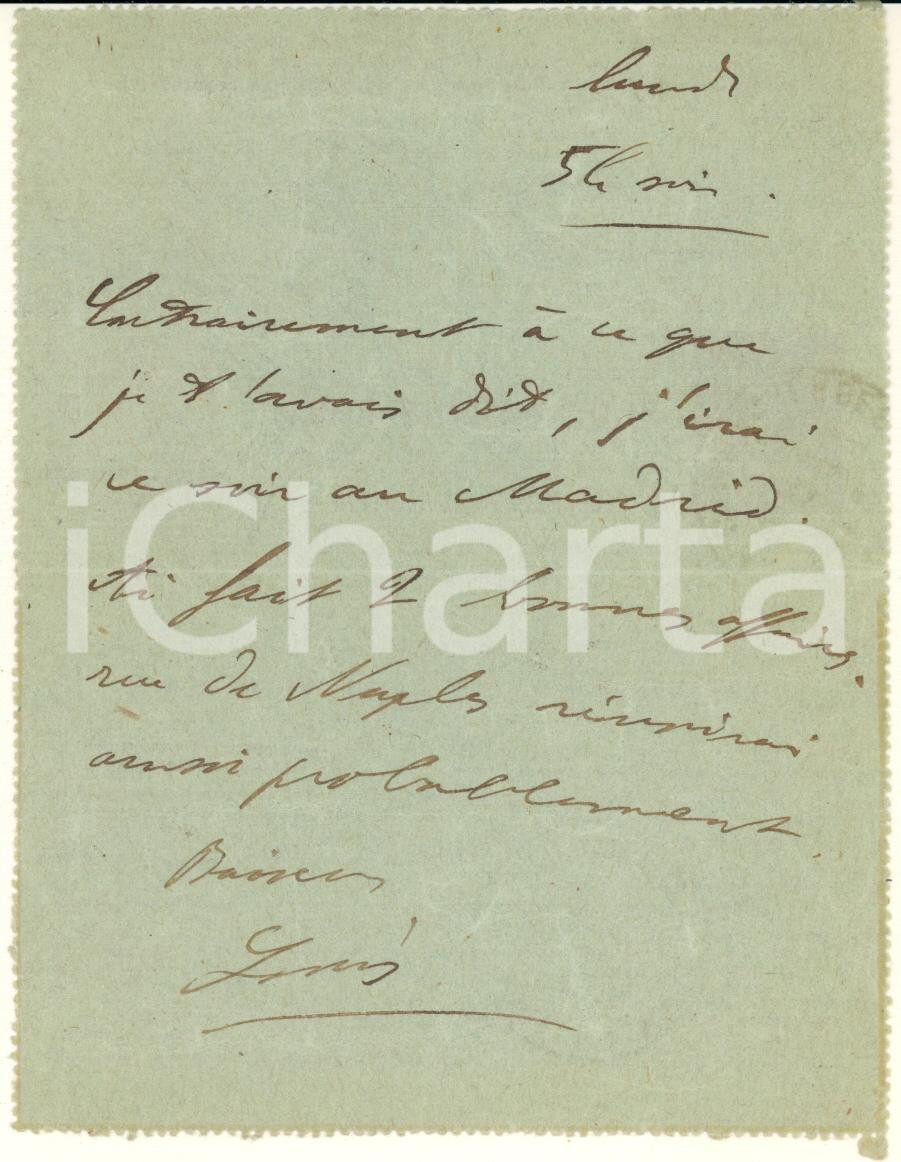 lundi
5h soir.
Contrairement à ce que
je t'avais dit, j'irai
ce soir au Madrid.
iCharta
Ai fait 2 bonnes affaires.
rue de Naples réussirai
aussi probablement.
Baisers
Louis